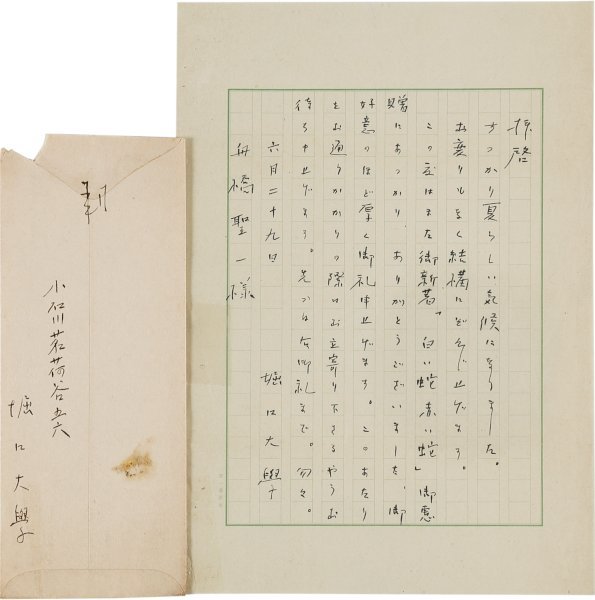 拝啓
すつかり夏らしい気候になりました。
お変りもなく結構にぞんじ上げます。
この度はまた御新著「白い蛇赤い蛇」御恵
贈にあつかり、ありがとうございました、御
好意のほど厚く御礼申上げます。このあたり
をお通りかかりの際はお立寄り下さるやうお
待ち申上げます。先づは右御礼まで。匆々。
六月二十九日
堀口大學
舟橋聖一様
小石川茗荷谷五六
堀口大學